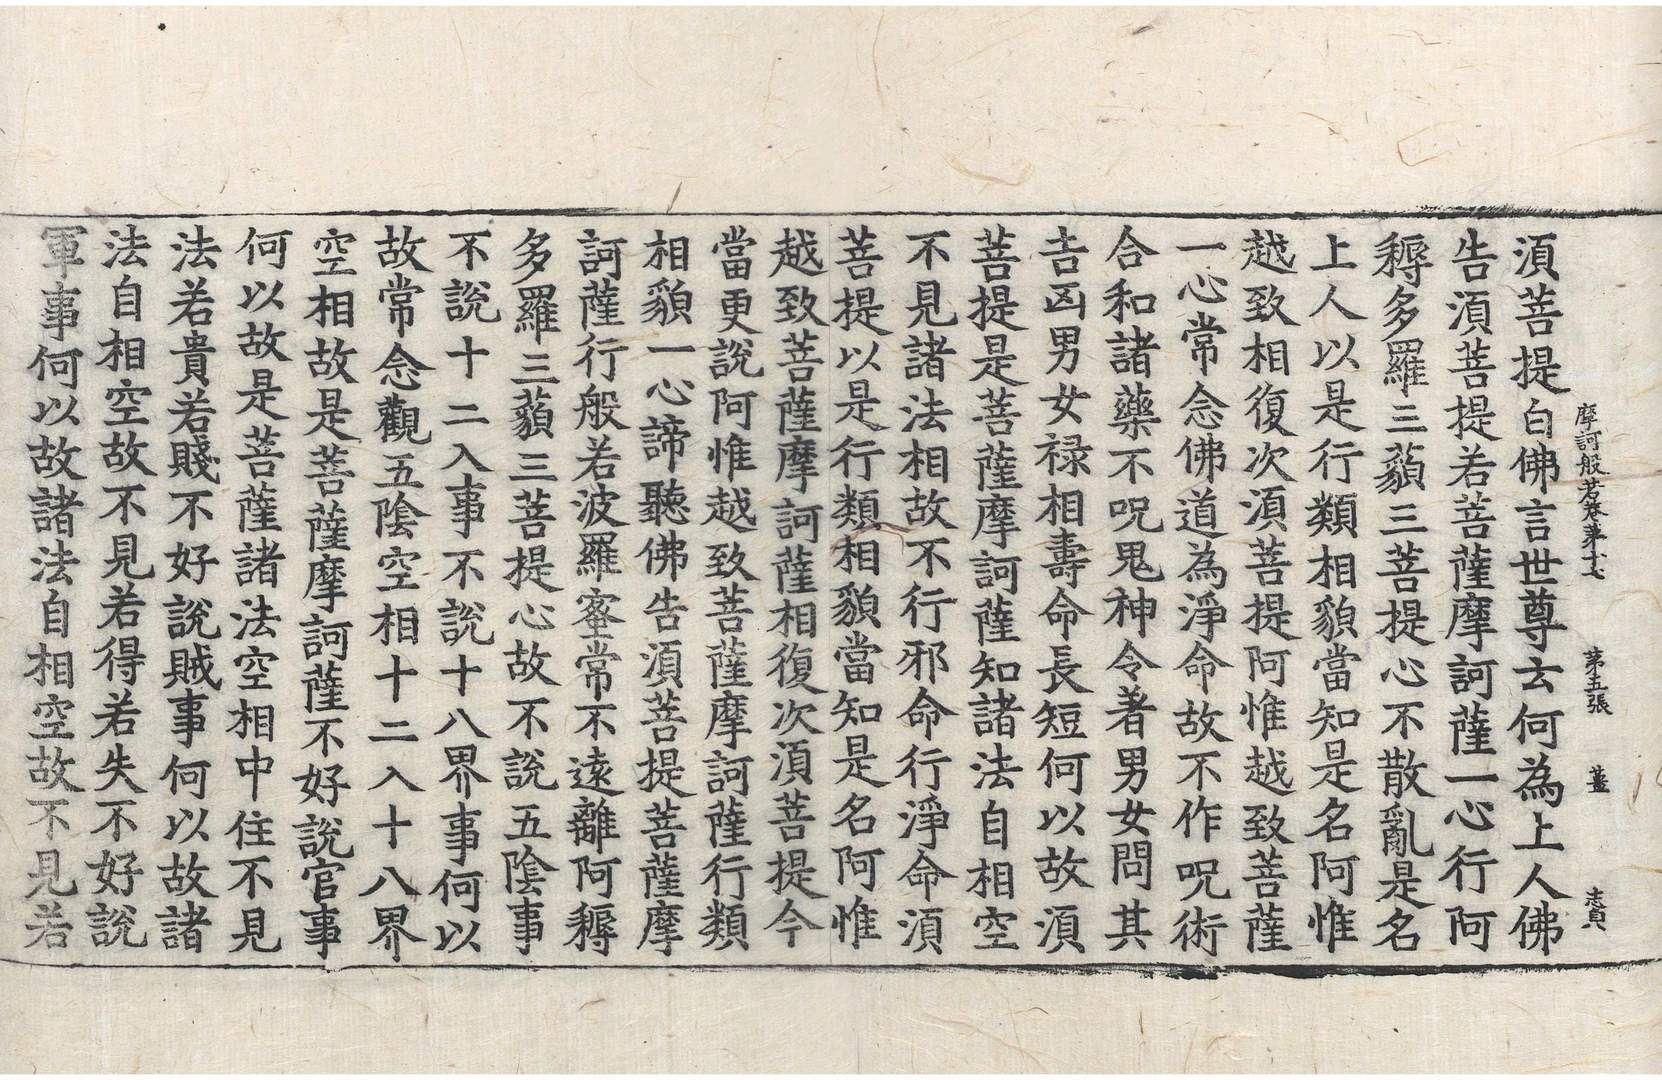 摩訶般若卷第十七　第五張　薑　志貞
湏菩提白佛言世尊云何為上人佛
告湏菩提若菩薩摩訶薩一心行阿
耨多羅三藐三菩提心不散亂是名
上人以是行類相貌當知是名阿惟
越致相復次湏菩提阿惟越致菩薩
一心常念佛道為淨命故不作呪術
合和諸藥不呪鬼神令著男女問其
吉凶男女祿相壽命長短何以故湏
菩提是菩薩摩訶薩知諸法自相空
不見諸法相故不行邪命行淨命湏
菩提以是行類相貌當知是名阿惟
越致菩薩摩訶薩相復次湏菩提今
當更說阿惟越致菩薩摩訶薩行類
相貌一心諦聽佛告湏菩提菩薩摩
訶薩行般若波羅蜜常不遠離阿耨
多羅三藐三菩提心故不說五陰事
不說十二入事不說十八界事何以
故常念觀五陰空相十二入十八界
空相故是菩薩摩訶薩不好說官事
何以故是菩薩諸法空相中住不見
法若貴若賤不好說賊事何以故諸
法自相空故不見若得若失不好說
軍事何以故諸法自相空故不見若